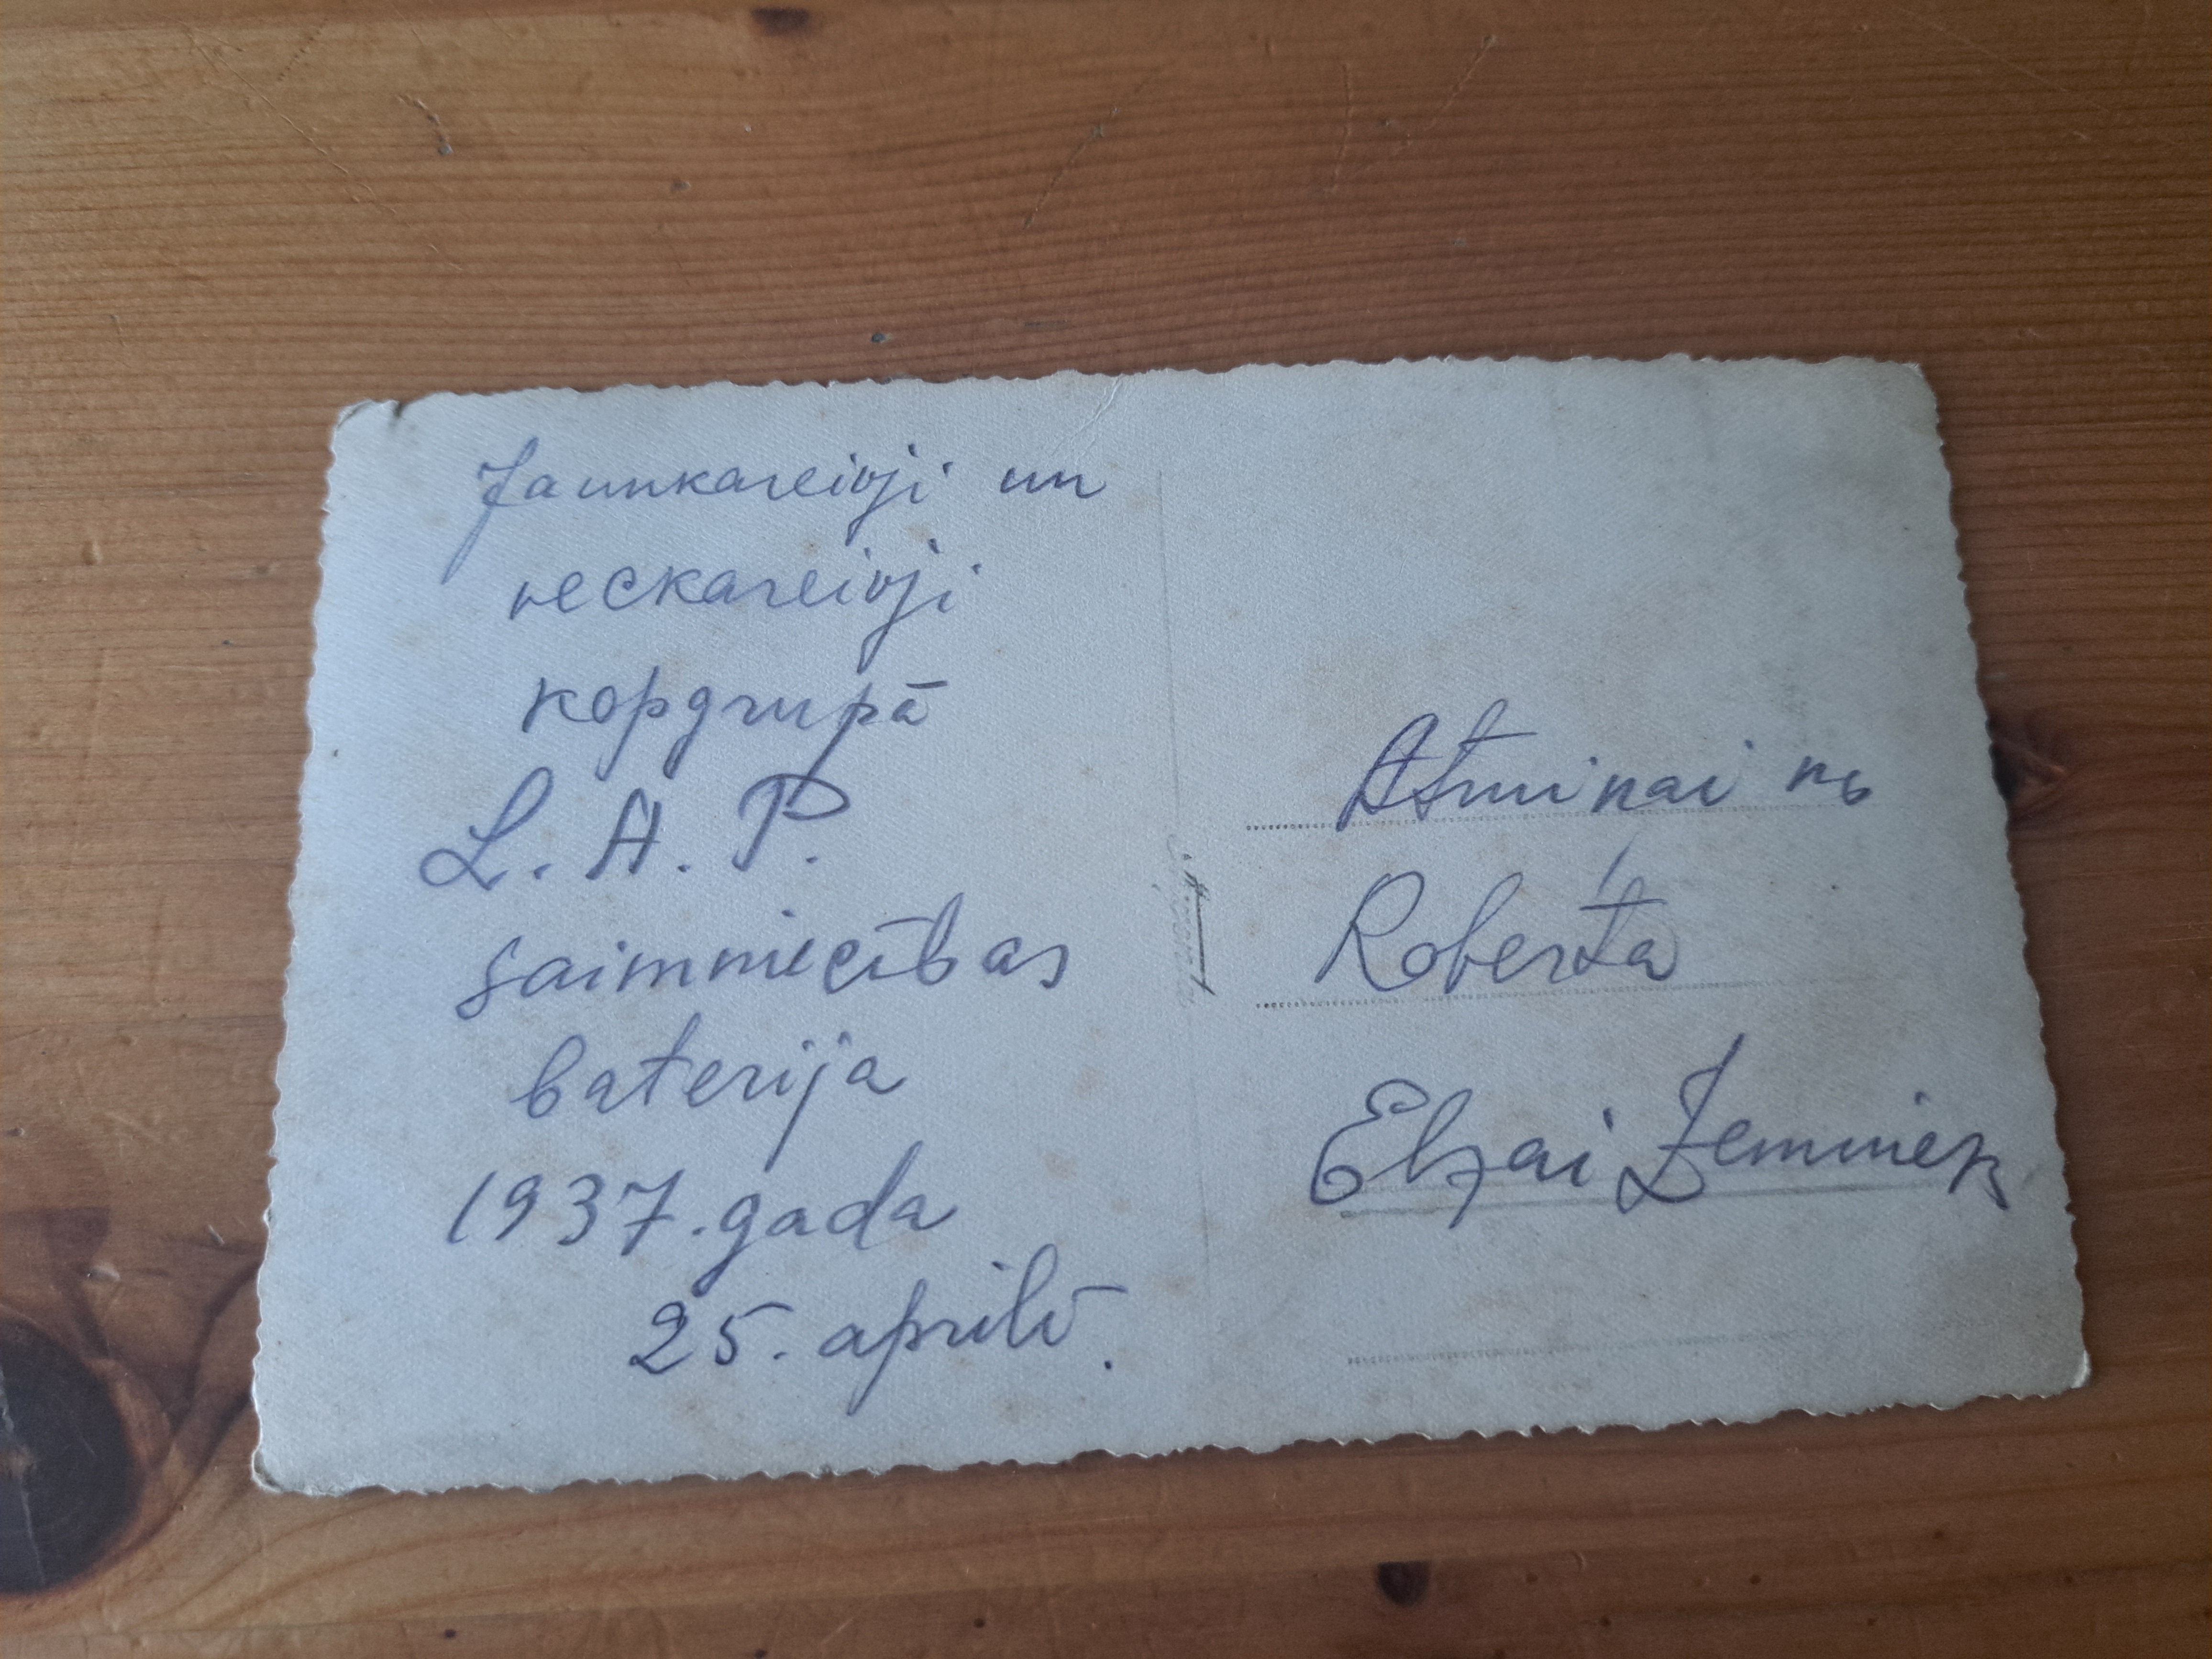 Jaunkareivji un
veckareivji
kopgrupā
L. A. P.
saimniecības
baterija
1937. gada
25. aprilī.
Atmiņai no
Roberta
Elzai Zemniek